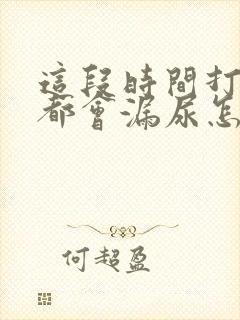 這段時間打
都會漏尿怎
何超盈